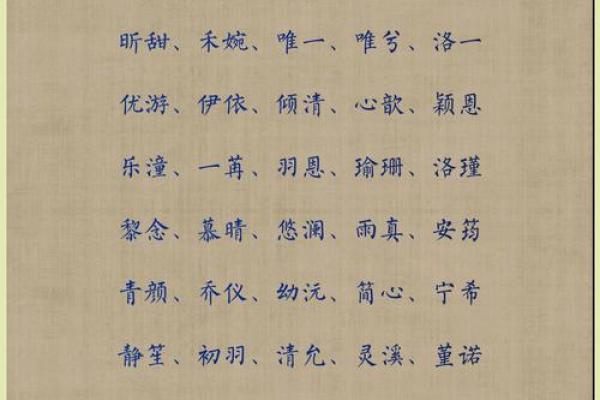 昕甜、禾婉、唯一、唯兮、洛一
优游、伊依、倾清、心歆、颖恩
乐潼、一苒、羽恩、瑜珊、洛瑾
黎念、慕晴、悠澜、雨真、安筠
青颜、乔仪、幼沅、简心、宁希
静笙、初羽、清允、灵溪、堇诺